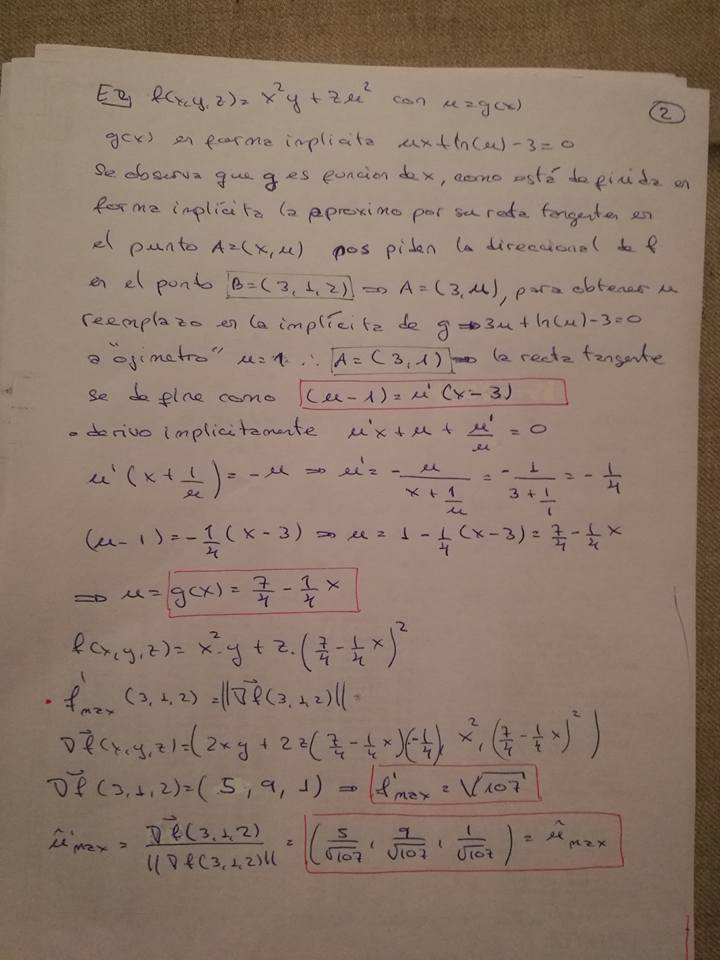 E2) f(x,y,z) = x²y + zu² con u=g(x)
②
g(x) en forma implicita ux+ln(u)-3=0
Se observa que g es funcion de x, como está definida en
forma implícita la aproximo por su recta tangente en
el punto A=(x,u) nos piden la direccional de f
en el punto B=(3,1,2) => A=(3,u), para obtener u
reemplazo en la implícita de g => 3u+ln(u)-3=0
a "ojimetro" u=1 ∴ A=(3,1) => la recta tangente
se define como (u-1)=u'(x-3)
• derivo implicitamente u'x + u + u'/u = 0
u'(x+1/u) = -u => u' = - u/(x+1/u) = - 1/(3+1/1) = - 1/4
(u-1) = -1/4(x-3) => u = 1 - 1/4(x-3) = 7/4 - 1/4x
=> u = g(x) = 7/4 - 1/4 x
f(x,y,z) = x²·y + z·(7/4 - 1/4x)²
• f'max (3,1,2) = ||∇f(3,1,2)||
∇f(x,y,z) = (2xy + 2z(7/4 - 1/4x)(-1/4), x², (7/4 - 1/4x)²)
∇f(3,1,2) = (5, 9, 1) => f'max = √107
ûmax = ∇f(3,1,2)/||∇f(3,1,2)|| = (5/√107, 9/√107, 1/√107) = ûmax